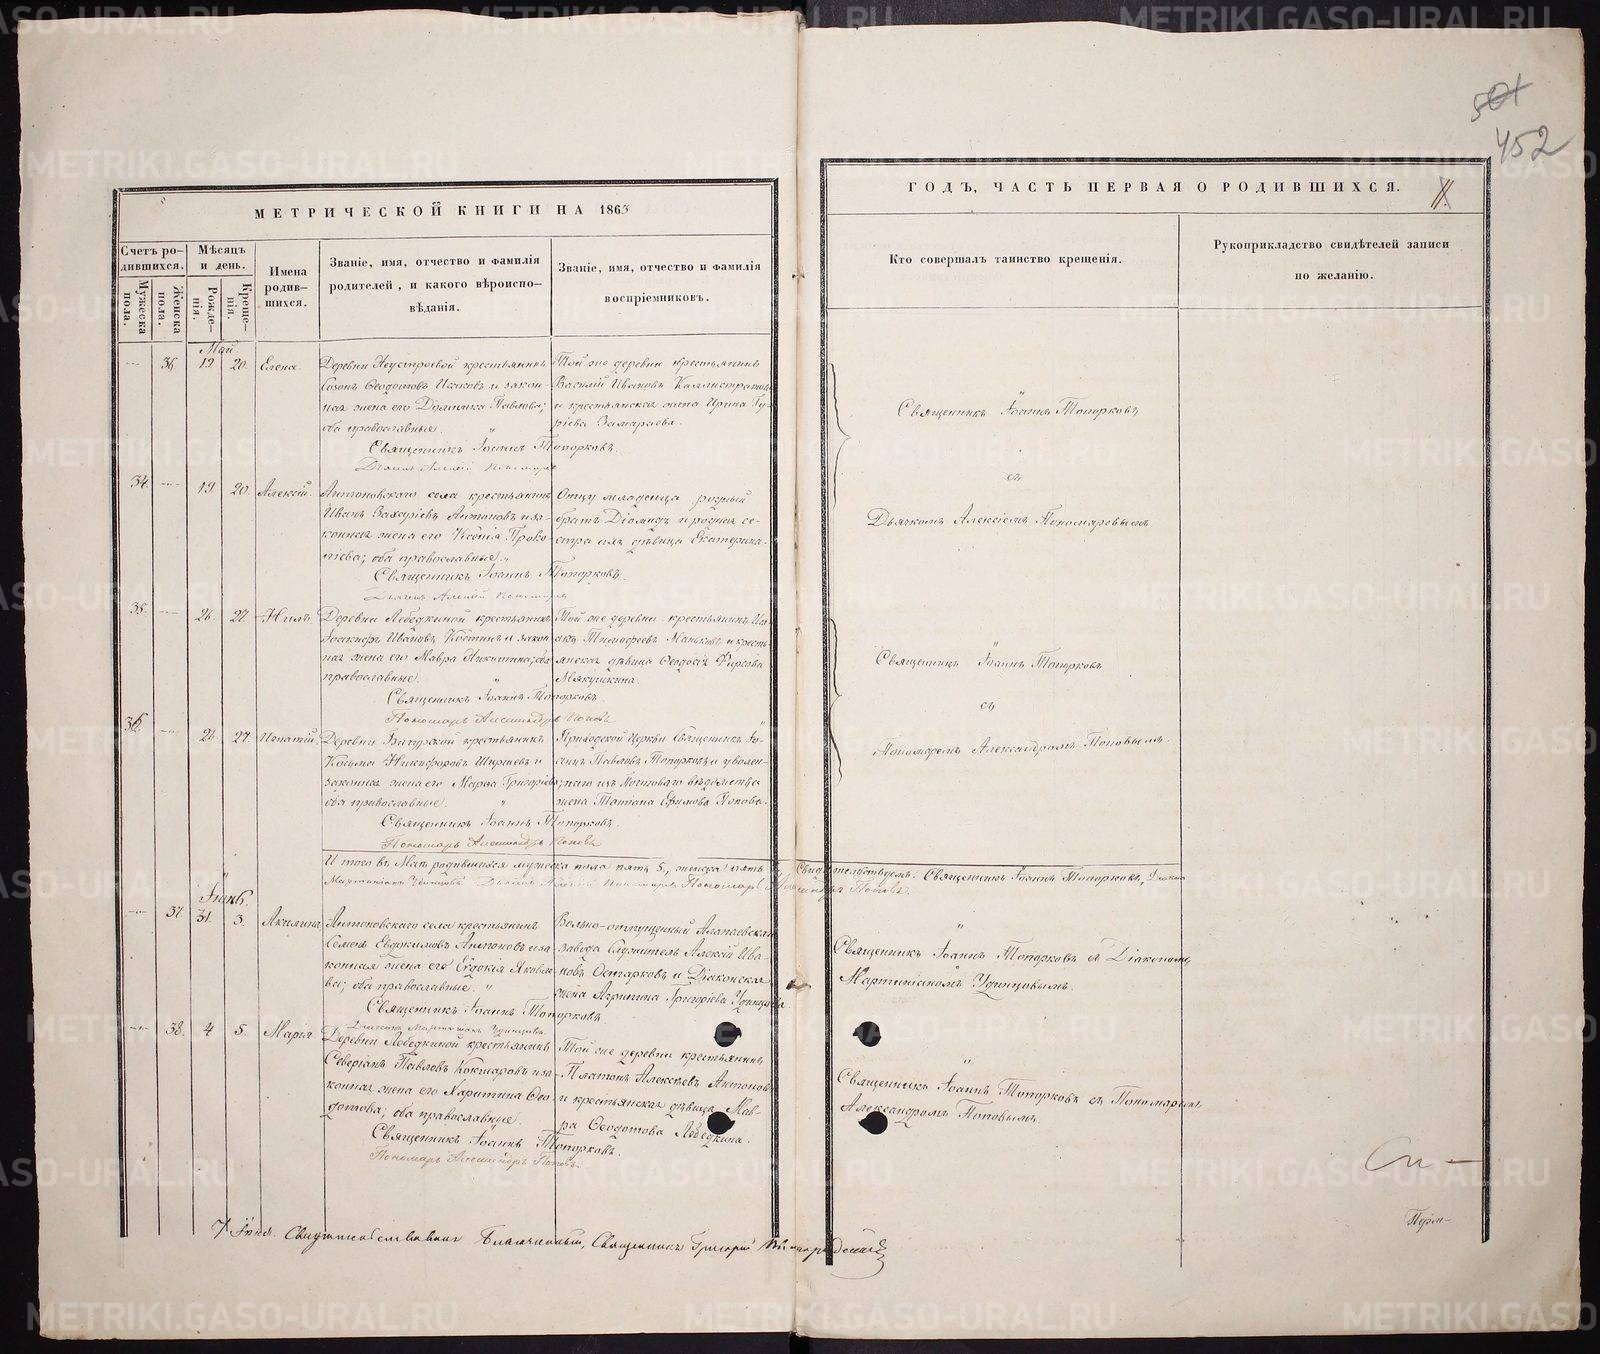 501
452
МЕТРИЧЕСКОЙ КНИГИ НА 1863
ГОДЪ, ЧАСТЬ ПЕРВАЯ О РОДИВШИХСЯ.
Счетъ ро-
дившихся.
Мужеска
пола.
Женска
пола.
Мѣсяцъ
и день.
Рожде-
нія.
Креще-
нія.
Имена
родив-
шихся.
Званіе, имя, отчество и фамилія
родителей, и какого вѣроиспо-
вѣданія.
Званіе, имя, отчество и фамилія
воспріемниковъ.
Кто совершалъ таинство крещенія.
Рукоприкладство свидѣтелей записи
по желанію.
Май
36 19 20. Елена
Деревни Неустроевой крестьянинъ
Созонъ Ѳеодотовъ Исаковъ и закон-
ная жена его Домника Павлова;
оба православные.
Священникъ Іоаннъ Топорковъ.
Той же деревни крестьянинъ
Василій Ивановъ Каллистратовъ
и крестьянская жена Ирина Гу-
рьева Замараева.
Священникъ Іоаннъ Топорковъ
съ
Дьячкомъ Алексіемъ Пономаревымъ
34. 19 20. Алексій.
Антоновскаго села крестьянинъ
Иванъ Захаріевъ Антоновъ и за-
конная жена его Ксенія Проко-
піева; оба православные.
Священникъ Іоаннъ Топорковъ.
Отцу младенца родный
братъ Діомидъ и родная се-
стра ихъ дѣвица Екатерина.
35. 26. 27 Нилъ
Деревни Лебедкиной крестьянинъ
Іоакимъ Ивановъ Костинъ и закон-
ная жена его Мавра Никитина; оба
православные.
Священникъ Іоаннъ Топорковъ.
Пономарь Александръ Поповъ
Той же деревни крестьянинъ Иса-
акъ Тимофеевъ Маньковъ и кресть-
янская дѣвица Ѳеодосія Фирсова
Мякушкина.
Священникъ Іоаннъ Топорковъ
съ
Пономаремъ Александромъ Поповымъ.
36. 26. 27. Ипатій.
Деревни Бичурской крестьянинъ
Косьма Никифоровъ Ширяевъ и
законная жена его Марѳа Григоріева;
оба православные.
Священникъ Іоаннъ Топорковъ.
Пономарь Александръ Поповъ
Приходской Церкви Священникъ Іо-
аннъ Павловъ Топорковъ и уволен-
наго изъ Почтоваго вѣдомства
жена Татіана Ефимова Попова.
Итого въ Маѣ родившихся мужеска пола пять 5., женска пять 5. Свидѣтельствуемъ: Священникъ Іоаннъ Топорковъ, Діаконъ
Мартиніанъ Удинцовъ Дьячекъ Алексій Пономаревъ Пономарь Александръ Поповъ.
Іюнь.
37. 31 3. Акилина
Антоновскаго села крестьянинъ
Семенъ Евдокимовъ Антоновъ и за-
конная жена его Евдокія Яковле-
ва; оба православные.
Священникъ Іоаннъ Топорковъ
Діаконъ Мартиніанъ Удинцовъ
Вольно-отпущенный Алапаевскаго
завода Служитель Алексій Ива-
новъ Остарковъ и Діаконская
жена Агрипина Григоріева Удинцова.
Священникъ Іоаннъ Топорковъ съ Діакономъ
Мартиніаномъ Удинцовымъ.
38. 4 5. Марія
Деревни Лебедкиной крестьянинъ
Северіанъ Павловъ Кокшаровъ и за-
конная жена его Харитина Ѳео-
дотова; оба православные.
Священникъ Іоаннъ Топорковъ.
Пономарь Александръ Поповъ.
Той же деревни крестьянинъ
Платонъ Алексѣевъ Антоновъ
и крестьянская дѣвица Мав-
ра Ѳеодотова Лебедкина.
Священникъ Іоаннъ Топорковъ съ Пономаремъ
Александромъ Поповымъ.
7 Іюня. Свидѣтельствовалъ Благочинный, Священникъ Григорій
METRIKI.GASO-URAL.RU